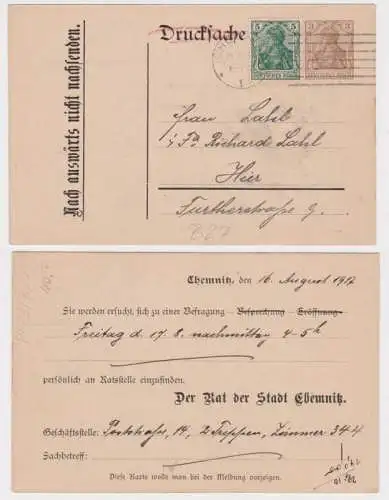 Nach auswärts nicht nachsenden.
Drucksache
5 5
DEUTSCHES REICH
3 3
DEUTSCHES REICH
Frau Lahl
Fa Richard Lahl
Hier
Furtherstraße 9.
B27
Chemnitz, den 16. August 1917
Sie werden ersucht, sich zu einer Befragung – Besprechung – Eröffnung –
Freitag d. 17. 8. nachmittag 4–5 h
persönlich an Ratsstelle einzufinden.
Der Rat der Stadt Chemnitz.
Geschäftsstelle: Poststraße, 14, 2 Treppen, Zimmer 344
Sachbetreff:
Diese Karte wolle man bei der Meldung vorzeigen.